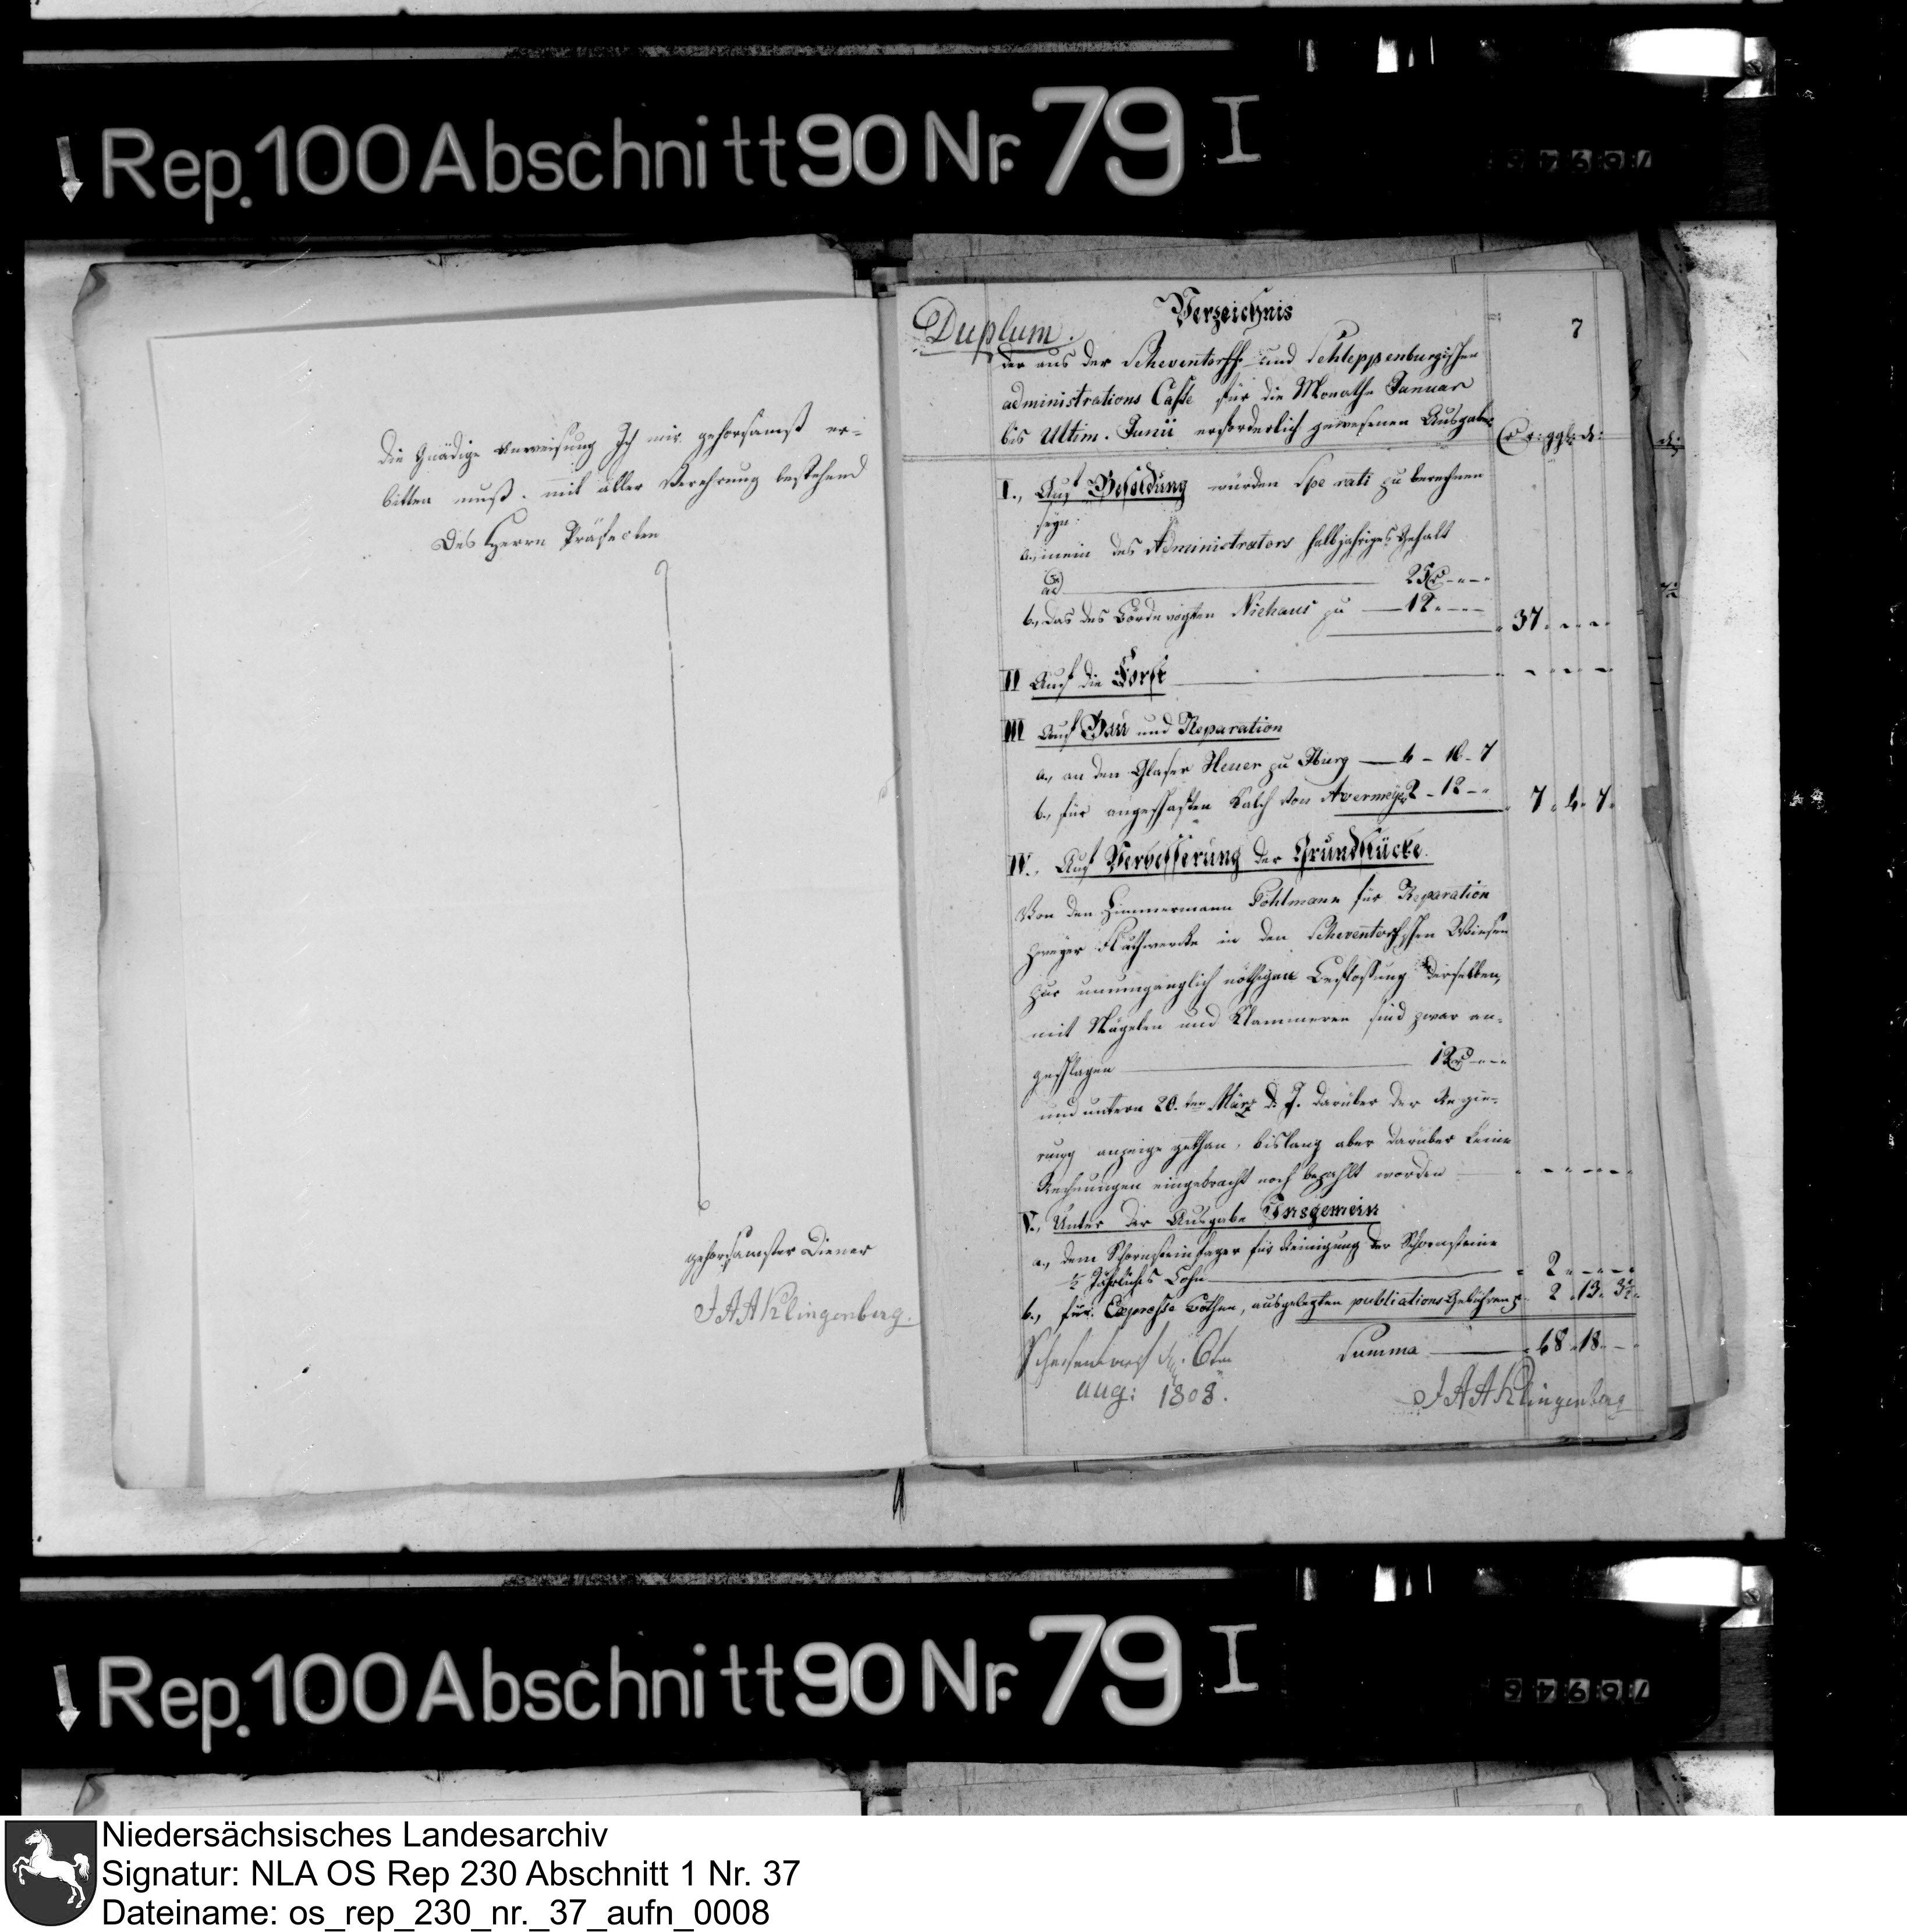 Rep. 100 Abschnitt 90 Nr. 79 I
76945
die Gnädige Anweisung Ich mir gehorsamst er-
bitten muß. mit aller Verehrung bestehend
Des Herrn Präfecten
gehorsamster Diener
JAAKlingenberg.
7
Duplum.
Verzeichnis
der aus der Scheventorff- und Schleppenburgischen
administrations Casse für die Monathe Januar
bis Ultim. Junii erforderlich gewesenen Ausgaben
r: ggl: d:
I., Auf Besoldung würden Spe rati zu berechnen
seyn:
a., mein des Administrators halbjähriges Gehalt
ad 25
b., das des Niehaus zu 12 37
II Auf die Forst
III Auf Bau und Reparation
a., an den Glaser Heuer zu Iburg 4 - 16 - 7
b., für angeschaften Kalch von Avermeyer 2 - 12 - 7 4 7
IV., Auf Verbesserung der Grundstücke.
Von den Zimmermann Pohlmann für Reparation
zweyer in den Scheventorfschen Wiesen
zur unumgänglich nöthigen derselben,
mit Nägelen und Klammeren sind zwar an-
geschlagen 12
und untern 20.ten März d. J. darüber der Regie-
rung anzeige gethan, bislang aber darüber keine
Rechnungen eingebracht noch bezahlt worden
V., Unter der Ausgabe Insgemein
a., dem Schornsteinfeger für Reinigung der Schornsteine
½ Jähriches Lohn 2
b., für Expresse Bothen, ausgelegten publiations Gebühren 2 13 3½
Summa 48 18
6ten
aug: 1808.
JAAKlingenberg
Rep. 100 Abschnitt 90 Nr. 79 I
76945
Niedersächsisches Landesarchiv
Signatur: NLA OS Rep 230 Abschnitt 1 Nr. 37
Dateiname: os_rep_230_nr._37_aufn_0008